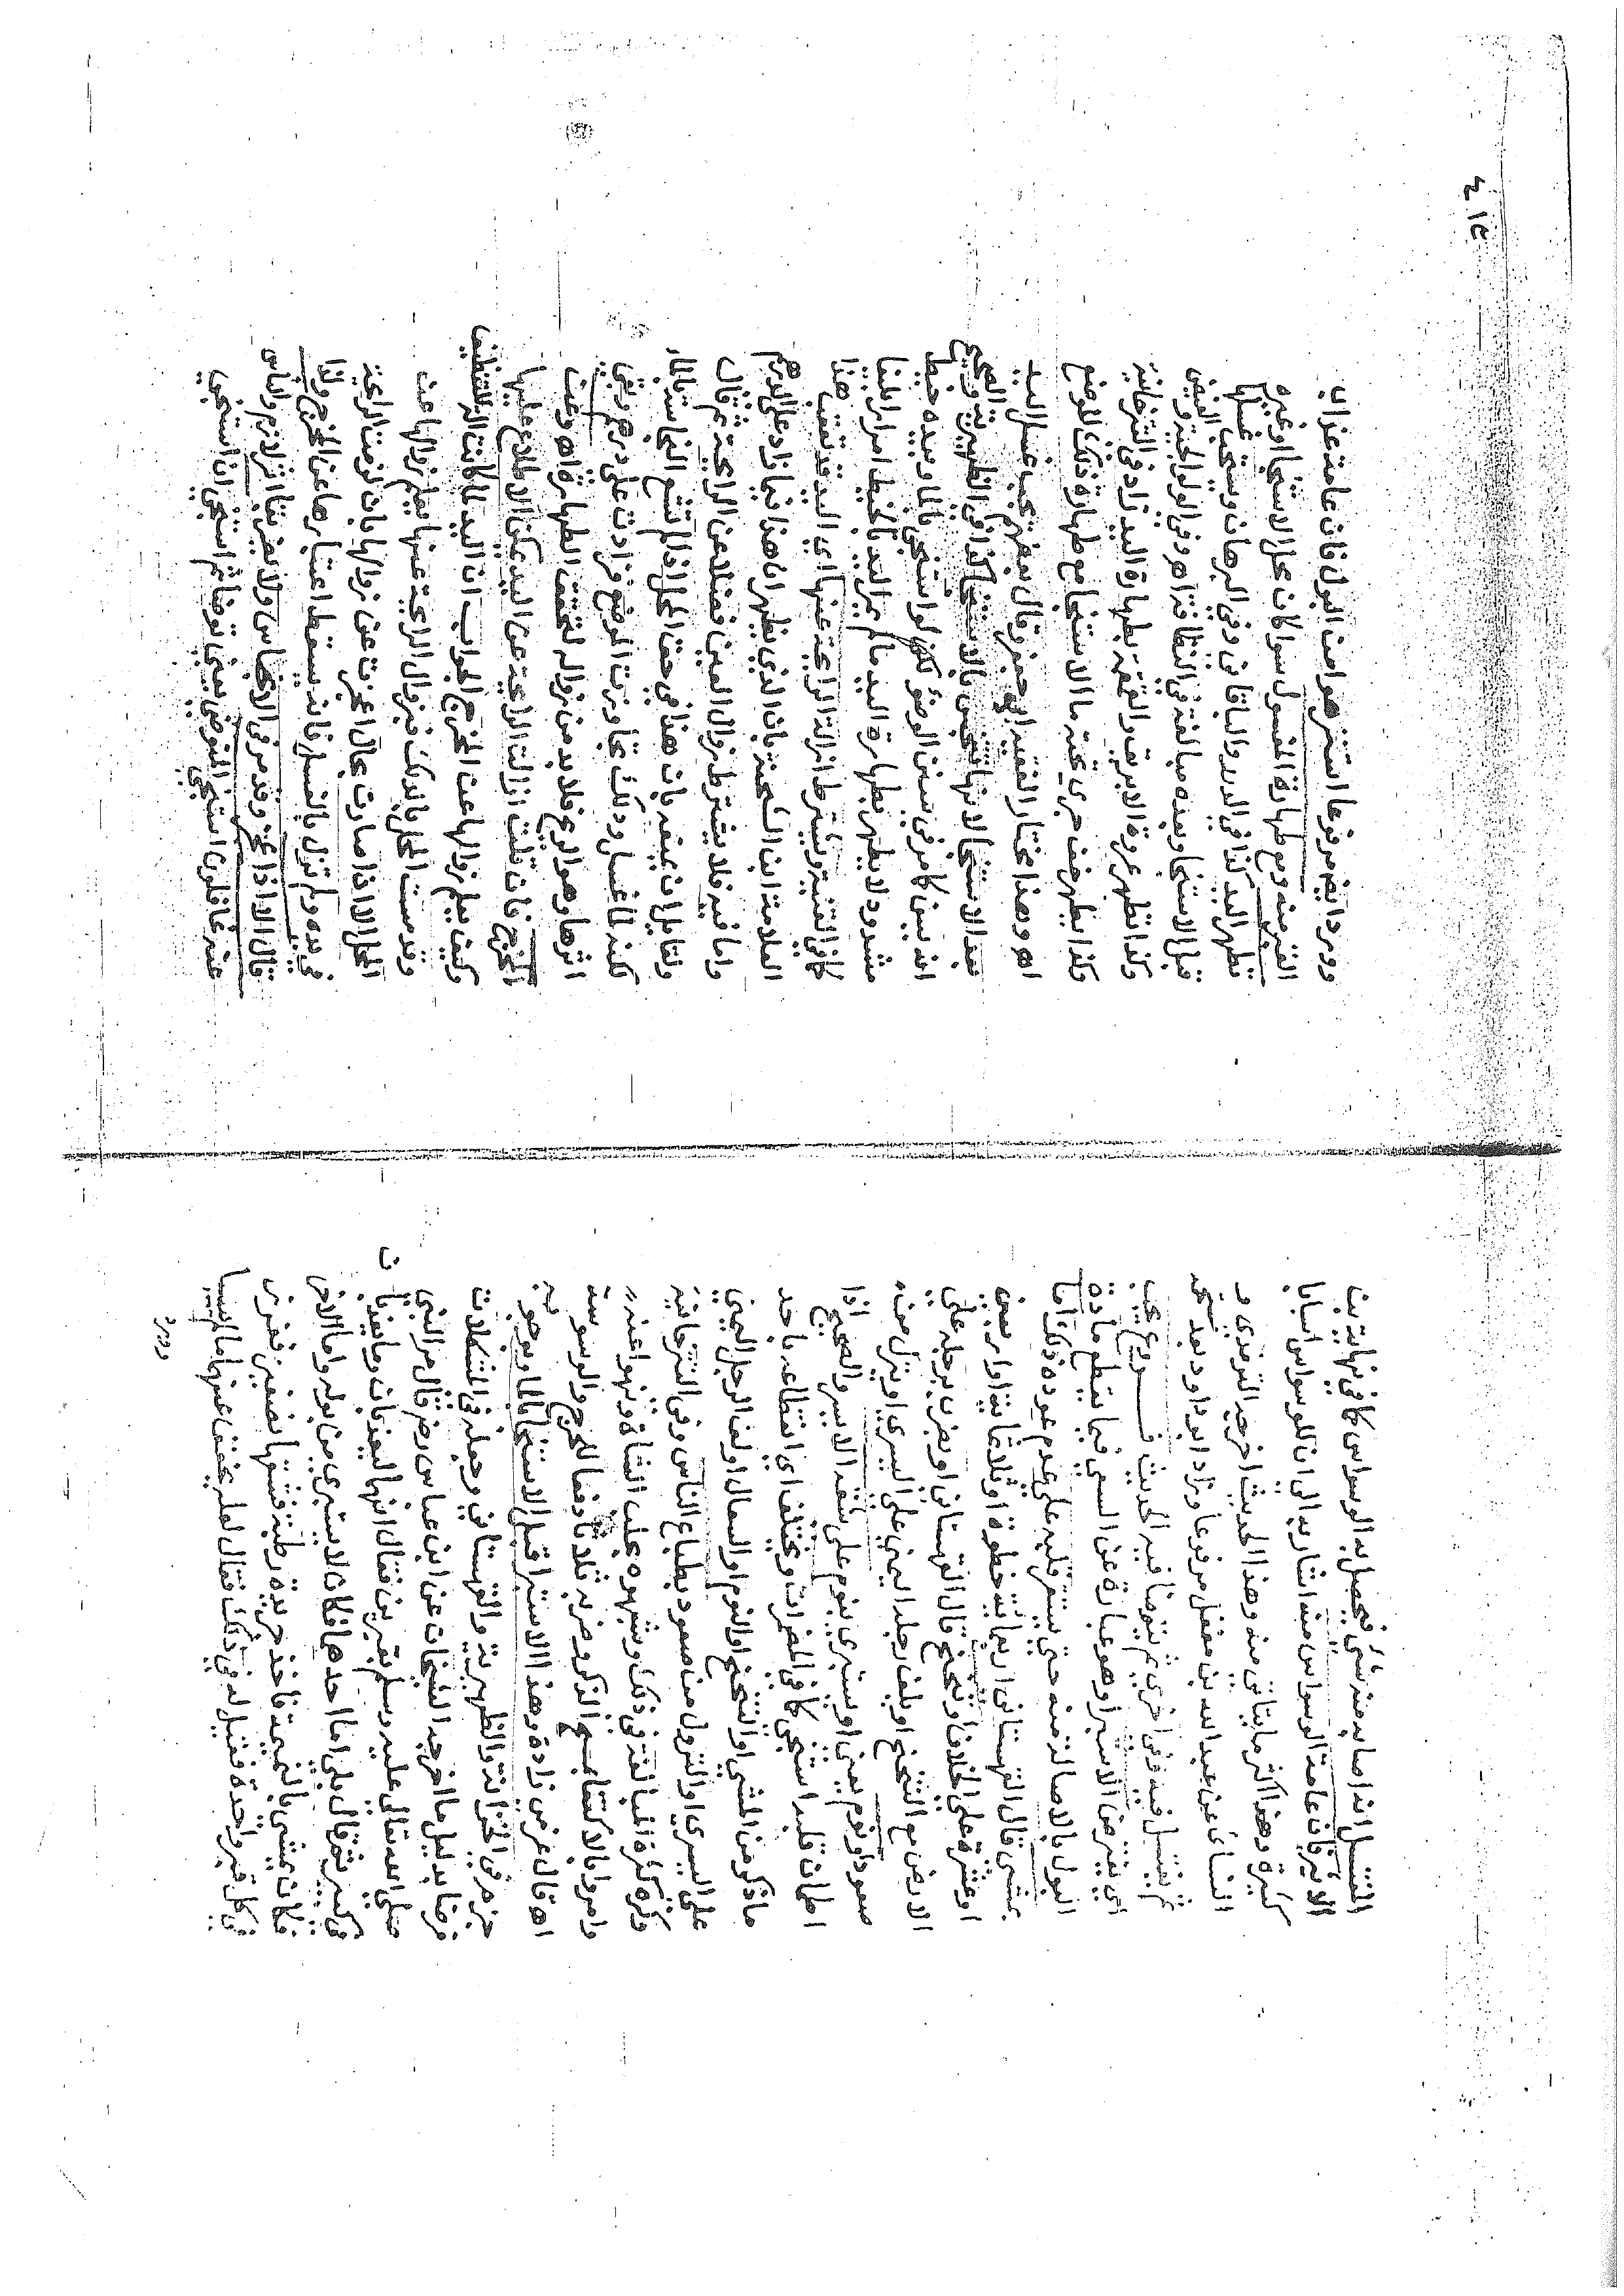 المغتسل انه اصابه منه شئ فيحصل به الوسواس كما في نهاية ابن
الاثير فان عامة الوسواس منه اشار به الى ان للوسواس اسبابا
كثيرة وهذا اكثر ما يتاتى منه وهذا الحديث اخرجه الترمذي و
النسائى عن عبد الله بن مغفل مرفوعا وزاد ابو داود بعد مستحمه
ثم يغتسل فيه وفي اخرى ثم يتوضا فيه الحديث فــروع يجب
اي يفترض الاستبرا وهو عبارة عن السعي فيما يقطع مادة
البول بالاصالة منه حتى يستقر قلبه على عدم عوده وذلك اما
بمشي قال القهستاني اربعماية خطوة او ثلاثماية او اربعين
او عشرة على الخلاف او تنحنح قال القهستاني او يضرب برجله على
الارض مع التنحنح او يلف رجله اليمنى على اليسرى او ينزل من
صعود او نوم يعني او يستبري بنوم على شقه الايسر والصحيح اذا
اطمان قلبه استنجى كما في المضمرات ويختلف اي انقطاعه باحد
ما ذكر من المشي او التنحنح او النوم او السعال او لف الرجل اليمنى
على اليسرى او النزول من صعود بطباع الناس وفي التترخانية
وكره كثرة المبالغة في ذلك وشبهوه بحلب الشاة ونهوا عنه
وامروا بالاكتفا بمسح الذكر وضربه ثلاثا دفعا للحرج والوسوسة
اه قال عزمي زاده وهذا الاستبرا قبل الاستنجا بالماء وبوجوبه
جزم في الخزانة والظهيرية والقهستاني وجعله في المشكلات
فرضا بدليل ما اخرجه الشيخان عن ابن عباس رضي قال مر النبي
صلى الله تعالى عليه وسلم بقبرين فقال انهما ليعذبان وما يعذبان
في كبير ثم قال بلى اما احدهما فكان لا يستبري من بوله واما الاخر
فكان يمشي بالنميمة فاخذ جريدة رطبة فشقها نصفين فغرز
في كل قبر واحدة فقيل له في ذلك فقال لعله يخفف عنهما ما لم ييبسا
وورد
وورد ايضا مرفوعا استنزهوا من البول فان عامة عذاب
القبر منه ومع طهارة المغسول سواكان محل الاستنجا او غيره
تطهر اليد كذا في الدرر والباقاني وفي البرهان ويستحب غسلها
قبل الاستنجا وبعده مبالغة في النظافة اه وفي الولوالجية وفي الفيض
وكذا تطهر عروة الابريق والقمقمة بطهارة اليد زاد في التترخانية
وكذا يطهر خف جرى تحته ما الاستنجا مع طهارة ذلك الموضع
اه وهذا مختار الفقيه ابو جعفر وقال بعضهم يجب غسل اليد
بعد الاستنجا لانها تتنجس بالاستنجا كذا في الظهيرية والصحيح
انه يبين كما مر في سنن الوضؤ لكن لو استنجى بالماء وبيده خيط
مشدود لا يطهر بطهارة اليد ما لم يمر اليد بالخيط امرارا بليغا
كما في القنية ويشترط ازالة الرايحة عنها اي اليد وقد تعقب هذا
العلامة ابن الشحنة بان الذي يظهر ان هذا فيما زاد على الدرهم
واما فيه فلا يشترط زوال العين فضلا عن الرايحة ثم قال
ولقايل ان يمنعه بان هذا في حق المحل اذا لم تتسع النجاسة بالماء
لكنه لما غسل وذلك تجاوزت الموضع فزادت على درهم وبقي
اثرها وهو الريح فلا بد من زواله لتحقق الطهارة اه وعن
المخرج فان قلت ازالت الرايحة عن اليد يمكن الاطلاع عليها
وكيف يعلم زوالها عن المخرج الجواب ان اليد لما كانت الة لتنظيف
وقد مست المحل بالدلك فبزوال الرايحة عنها يعلم زوالها عن
المحل الا اذا صارت بحال اعجزت عن زوالها بان لزمت الرايحة
في يده ولم تزل بالغسل فانه يسقط اعتبارها عن المخرج ولذا
قال الا اذا عجز وقد مر في الانجاس ولا يضر بقا اثر لازم والناس
عنه غافلون استنجى المتوضئ يعني توضا ثم استنجى ان استنجى